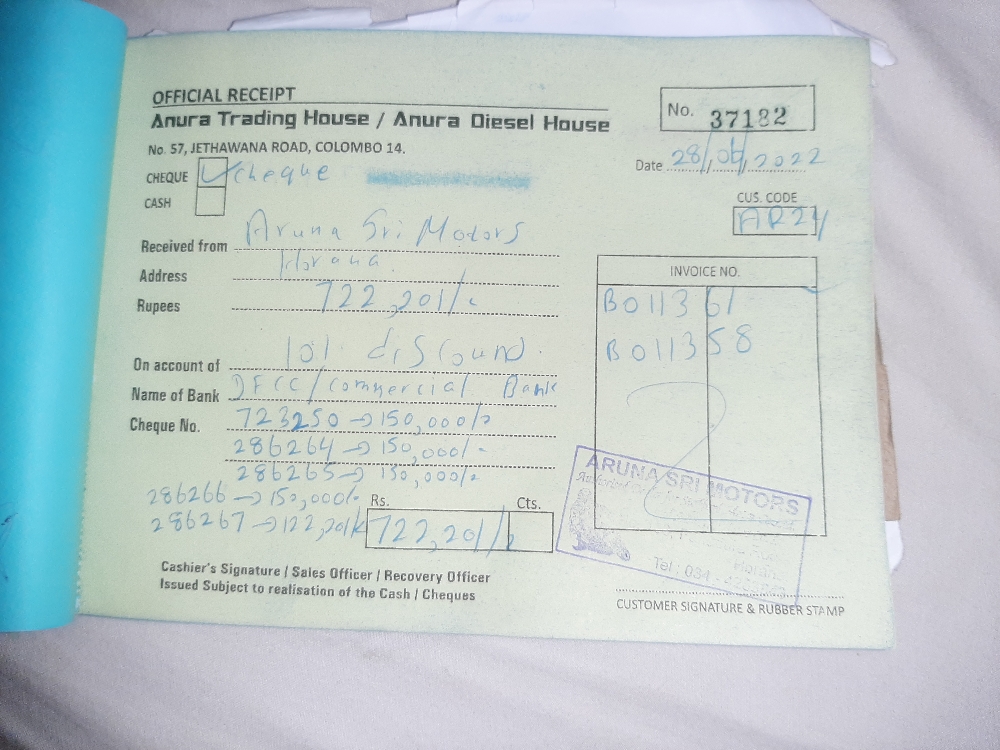 OFFICIAL RECEIPT
Anura Trading House / Anura Diesel House
No. 37182
No. 57, JETHAWANA ROAD, COLOMBO 14.
Date 28/06/2022
CHEQUE ✓ Cheque
CASH
CUS. CODE
AR24
Received from Aruna Sri Motors
Address Horana
Rupees 722,201/-
INVOICE NO.
B011361
B011358
On account of 10% discound.
Name of Bank DFCC/Commercial Bank
Cheque No. 723250 → 150,000/-
286264 → 150,000/-
286265 → 150,000/-
286266 → 150,000/-
286267 → 122,201/-
Rs. Cts.
722,201/-
ARUNA SRI MOTORS
Horana
Tel : 034 -
Cashier's Signature / Sales Officer / Recovery Officer
Issued Subject to realisation of the Cash / Cheques
CUSTOMER SIGNATURE & RUBBER STAMP